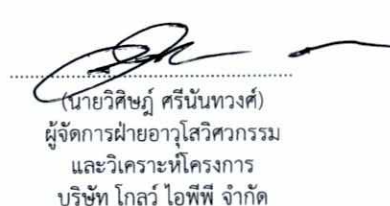 (นายวิศิษฎ์ ศรีนันทวงศ์)
ผู้จัดการฝ่ายอาวุโสวิศวกรรม
และวิเคราะห์โครงการ
บริษัท โกลว์ ไอพีพี จำกัด